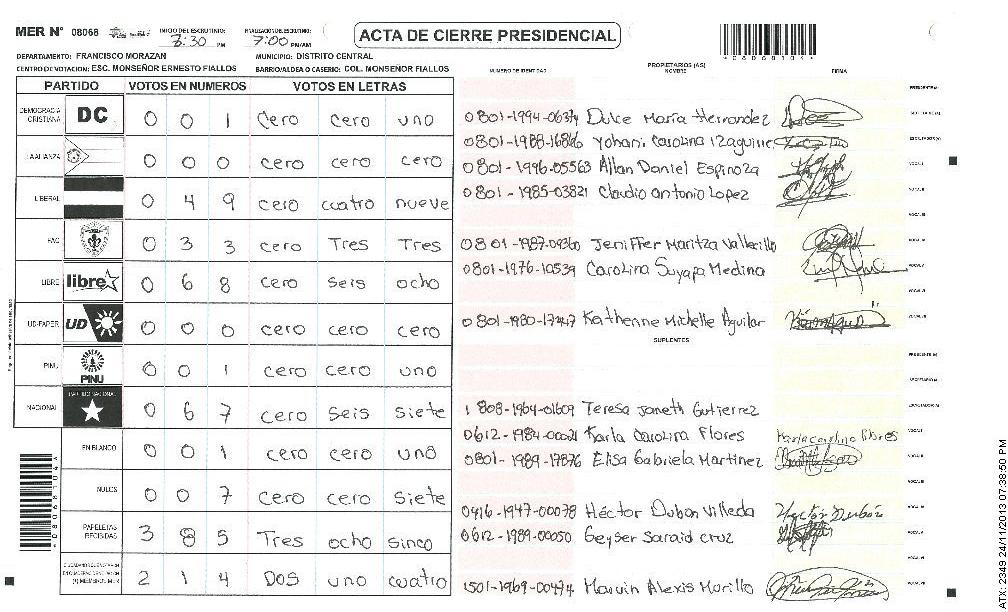 MER N° 08068 INICIO DEL ESCRUTINIO: 3:30 PM FINALIZACION DEL ESCRUTINIO: 7:00 PM/AM ACTA DE CIERRE PRESIDENCIAL
DEPARTAMENTO: FRANCISCO MORAZAN MUNICIPIO: DISTRITO CENTRAL
CENTRO DE VOTACION: ESC. MONSEÑOR ERNESTO FIALLOS BARRIO/ALDEA O CASERIO: COL. MONSEÑOR FIALLOS
*08068104*
NUMERO DE IDENTIDAD PROPIETARIOS (AS) NOMBRE FIRMA
PARTIDO VOTOS EN NUMEROS VOTOS EN LETRAS
DEMOCRACIA CRISTIANA DC 0 0 1 Cero cero uno
LA ALIANZA 0 0 0 cero cero cero
LIBERAL 0 4 9 cero cuatro nueve
PAC 0 3 3 cero Tres Tres
LIBRE libre 0 6 8 cero seis ocho
UD-FAPER UD 0 0 0 cero cero cero
PINU PINU 0 0 1 cero cero uno
NACIONAL PARTIDO NACIONAL 0 6 7 cero seis siete
EN BLANCO 0 0 1 cero cero uno
NULOS 0 0 7 cero cero siete
PAPELETAS RECIBIDAS 3 8 5 Tres ocho sinco
2 1 4 DOS uno cuatro
Dulce Maria Hernandez
Yohani Carolina Izaguirre
0801-1996-05563 Allan Daniel Espinoza
0801-1985-03821 Claudio Antonio Lopez
0801-1987-09360 Jeniffer Maritza Vallecillo
0801-1976-10539 Carolina Suyapa Medina
Katherine Michelle Aguilar
SUPLENTES
1808-1964-01609 Teresa Janeth Gutierrez
0612-1984-00021 Karla Carolina Flores Karla carolina flores
0801-1989-17876 Elisa Gabriela Martinez
0416-1947-00078 Héctor Dubon Villeda
0612-1989-00050 Geyser Saraid cruz
1501-1969-00494 Marvin Alexis Morillo
*08068104*
ATX: 2349 24/11/2013 07:38:50 PM